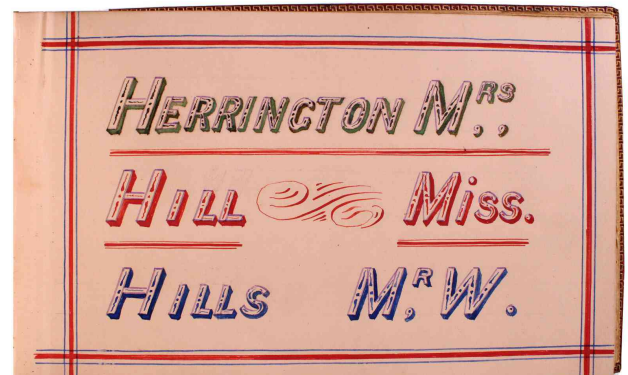 HERRINGTON MRS,,
HILL MISS.
HILLS MR, W.